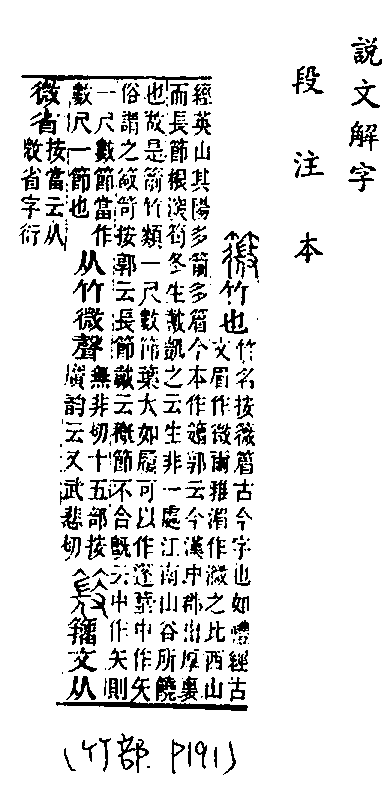 說文解字
段注本
䉠竹也
竹名按䉠篃古今字也如禮經古
文眉作微爾雅湄作溦之比西山
經英山其陽多箭多篃今本作郭云今漢中郡出厚裏
而長節根深筍冬生戴凱之云生非一處江南山谷所饒
也故是箭竹類一尺數節葉大如履可以作篷葟中作矢
俗謂之笴按郭云長節戴云節不合旣云中作矢則
一尺數節當作
數尺一節也
从竹微聲
無非切十五部按
廣韵云又武悲切
籒文从
微省
按當云从
𢼸省字衍
(竹部 P191)